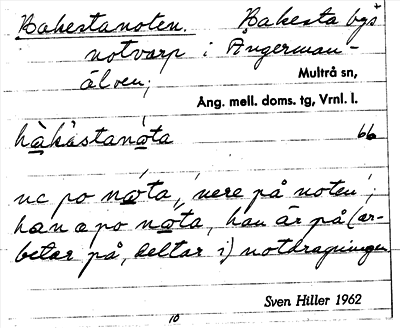 Bakestanoten. Bakesta bys
notvarp i Ångerman-
älven;
Multrå sn,
Ang. mell. doms. tg, Vrnl. l.
bàkàstanǫta 66
po nǫta, vere på noten,;
han æ po nǫta, han är på (ar-
betar på, deltar i) notdragningen
Sven Hiller 1962
10